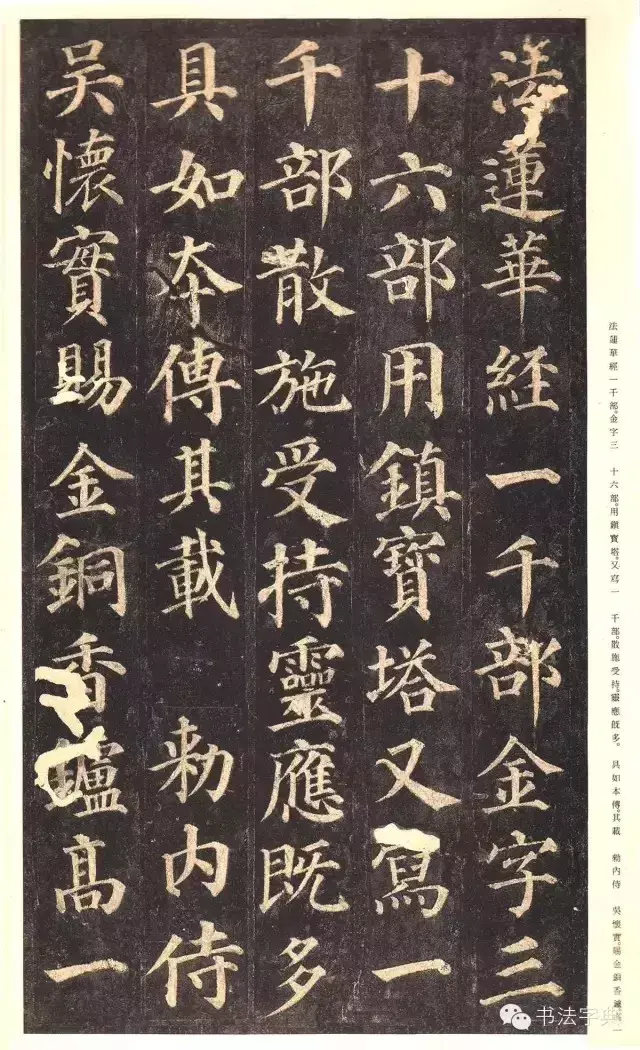 法蓮華經一千部金字三
十六部用鎮寶塔又寫一
千部散施受持靈應既多
具如本傳其載 勅內侍
吳懷實賜金銅香鑪高一
法蓮華經一千部。金字三 十六部。用鎮寶塔。又寫一 千部。散施受持。靈應旣多。 具如本傳。其載 勅內侍 吳懷實。賜金銅香鑪高一
书法字典